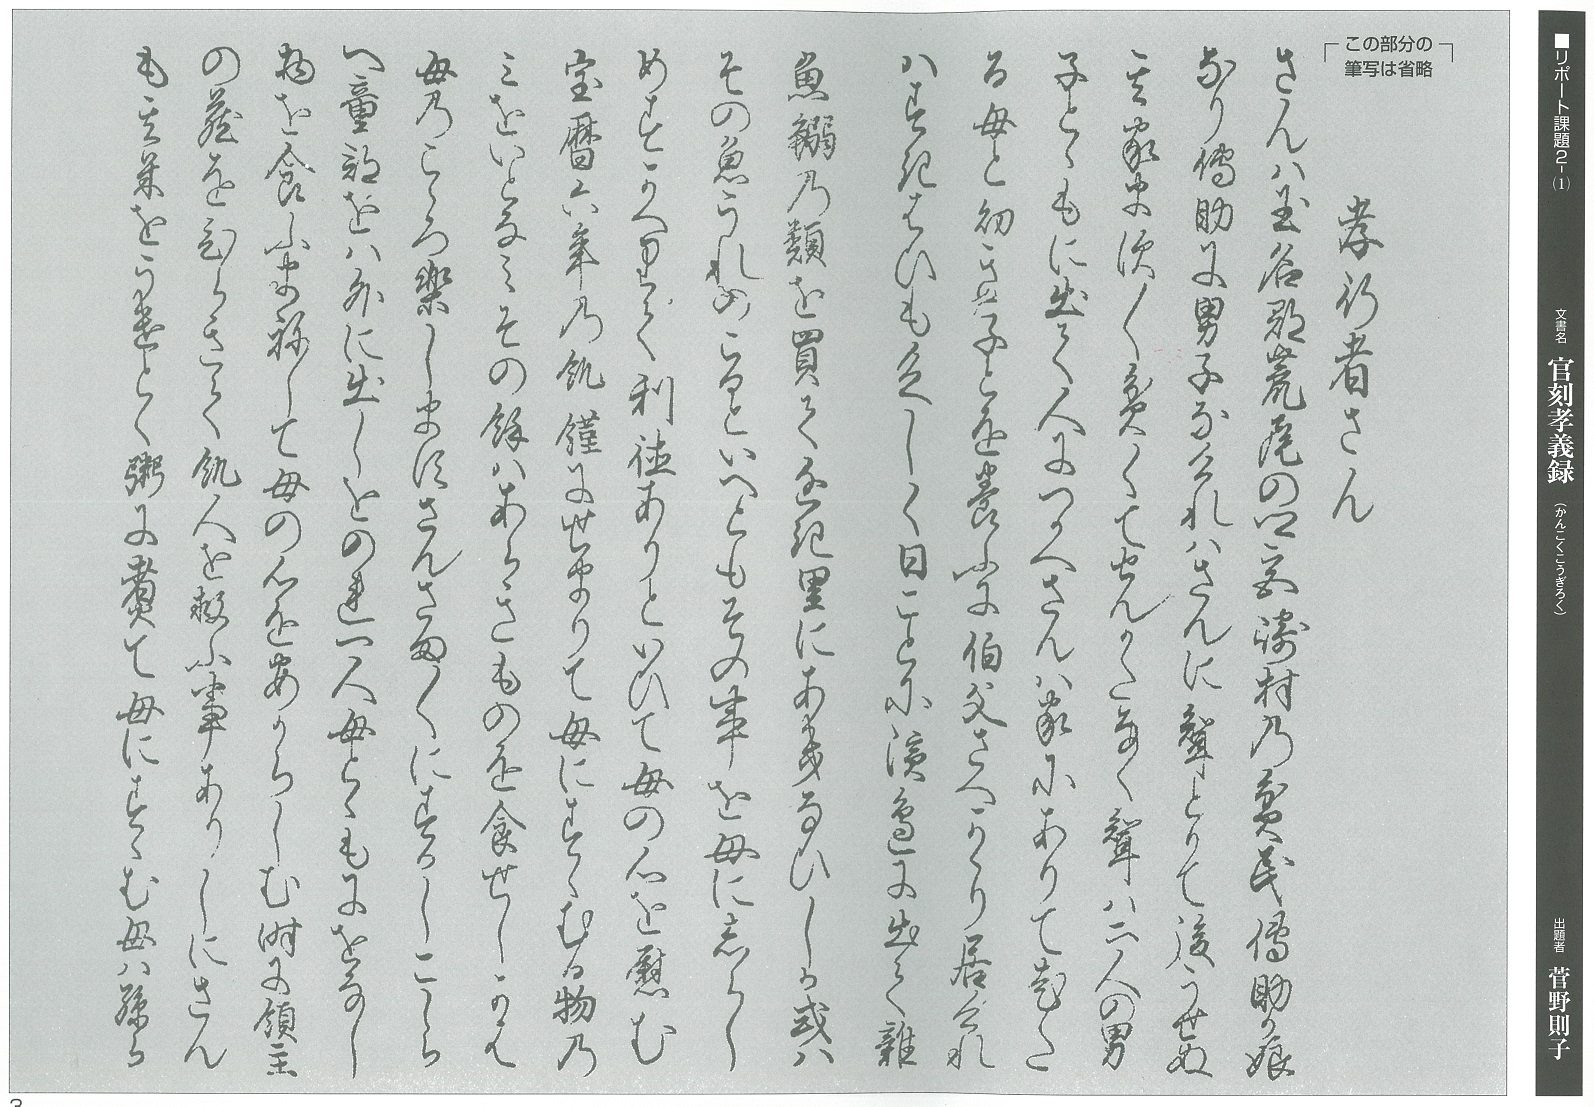 ■リポート課題2-(1)
文書名 官刻孝義録 (かんこくこうぎろく)
出題者 菅野則子
この部分の
筆写は省略
孝行者さん
さんハ玉名郡荒尾の口 村乃貧民儀助か娘
なり儀助に男子なけれハさんに聟とりて後うせぬ
其家ます〳〵貧くてせんかたなく聟ハ二人の男
子とゝもに出て人につかへさんハ家にありて老た
る母と幼き女子とを養ふに伯父さへかゝり居けれ
ハすきはひも乏しく日ことに濱邊に出て雑
魚鰯乃類を買て遠き里にあきなひしか或ハ
その魚うれのこるといへともその事を母に志らし
めすかへりて利徳ありといひて母の心を慰む
宝暦六年乃飢饉に世せまりて母にすゝむる物乃
ミをいとなミその餘ハあらきものを食せしかは
母乃こゝろ楽しますさんさま〳〵にすかしこしら
へ童部をハ外に出しをのれ一人母とゝもにをなし
物を食ふまねして母の心を安からしむ時に領主
の蔵をひらきて飢人を救ふ事ありしにさん
も其米をうけとく粥に煮て母にすゝむ母ハ孫ら
3